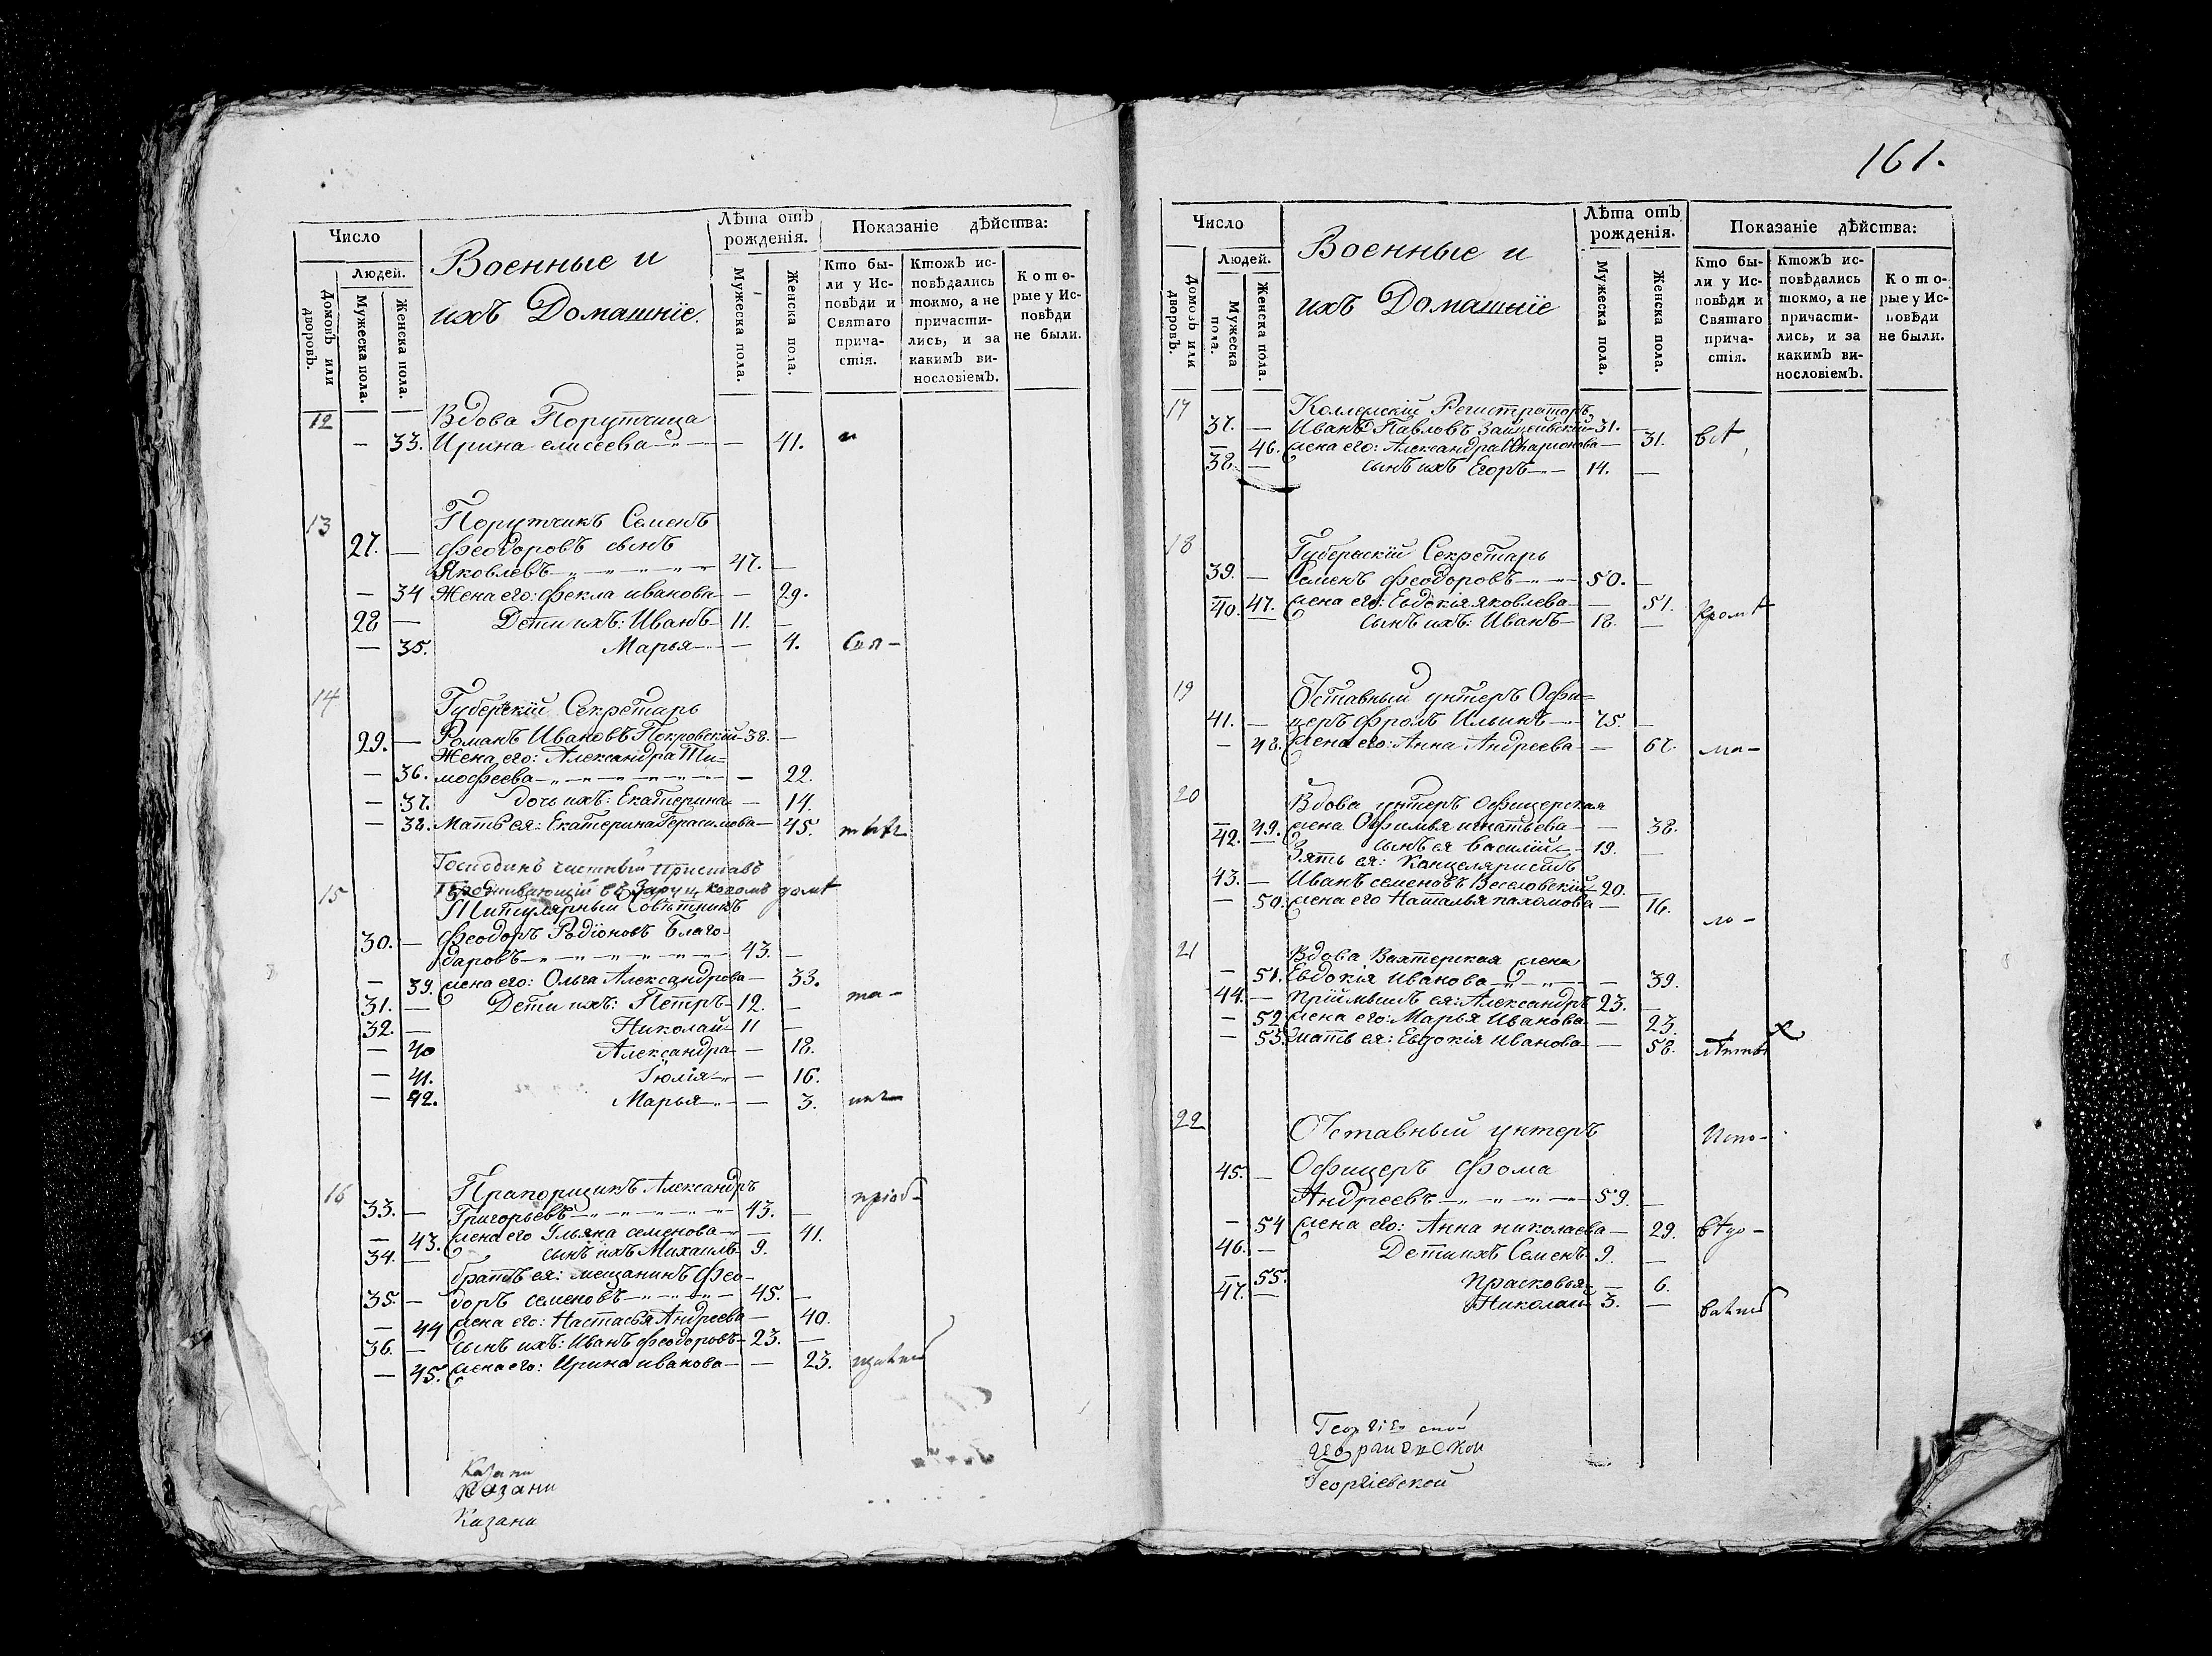 161.
Число
Людей.
Домовъ или дворовъ.
Мужеска пола.
Женска пола.
Военные и
ихъ Домашнїе.
Лѣта отъ рожденія.
Мужеска пола.
Женска пола.
Показаніе дѣйства:
Кто бы-
ли у Ис-
повѣди и
Святаго
прича-
стія.
Ктожъ ис-
повѣдались
токмо, а не
причасти-
лись, и за
какимъ ви-
нословіемъ.
Кото-
рые у Ис-
повѣди
не были.
12 Вдова Порутчица
— 33. Ирина елисеева — — 41.
13 Порутчикъ Семенъ
27. — феодоровъ сынъ
Яковлевъ — 47. —
— 34 Жена его: фекла иванова — 29.
28 — Дети ихъ: Иванъ — 11. —
— 35. Марья — — 4.
14 Губернскїй Секретарь
29. — Романъ Ивановъ Покровскїй — 38. —
Жена его: Александра Ти=
— 36. мофеева — — 22.
— 37. дочь ихъ: Екатерина — — 14.
— 38. Мать ея: Екатерина Герасимова — — 45.
Господинъ частный приставъ
15 Проживающій въ домѣ
Титулярный Совѣтникъ
30. — Феодоръ Родїоновъ Благо-
даровъ — 43. —
— 39. жена его: Ольга Александрова — — 33.
31. — Дети ихъ: Петръ — 12. — та-
32. — Николай — 11 —
— 40 Александра — — 18.
— 41. Їюлїя — — 16.
— 42. Марья — — 3.
16 Прапорщикъ Александръ прїоб-
33. — Григорьевъ — 43. —
— 43. жена его Ульяна семенова — — 41.
34. — сынъ ихъ Михаилъ 9.
братъ ея: мещанинъ Фео-
35. — доръ семеновъ — 45. —
— 44 жена его: Настасья Андреева — 40.
36. — сынъ ихъ: Иванъ феодоровъ — 23. —
— 45. жена его: Ирина иванова — — 23.
Казани
Казани
Казани
Число
Людей.
Домовъ или дворовъ.
Мужеска пола.
Женска пола.
Военные и
ихъ Домашнїе
Лѣта отъ рожденія.
Мужеска пола.
Женска пола.
Показаніе дѣйства:
Кто бы-
ли у Ис-
повѣди и
Святаго
прича-
стія.
Ктожъ ис-
повѣдались
токмо, а не
причасти-
лись, и за
какимъ ви-
нословіемъ.
Кото-
рые у Ис-
повѣди
не были.
17 Коллежскїй Регистраторъ
37. — Иванъ Павловъ — 31. —
— 46. жена его: Александра Иларионова — 31. всѣ
38. — сынъ ихъ Егоръ — 14. —
18 Губернскїй Секретарь
39. — Семенъ феодоровъ — 50. —
— 47. жена его: Евдокїя яковлева — — 51. кромѣ
40. — сынъ ихъ: Иванъ — 18. —
19 Отставный унтеръ Офи=
41. — церъ Фролъ Ильинъ — 75. —
— 48. жена его: Анна Андреева — — 67. ма-
20 Вдова унтеръ офицерская
— 49. жена Офимья игнатьева — — 38.
42. — сынъ ея василїй — 19. —
Зять ея: Канцеляристъ
43. — Иванъ семеновъ Веселовскїй — 20. —
— 50. жена его Наталья пахомова — 16. ло-
21 Вдова Вахтерская жена
— 51. Евдокїя иванова — — 39.
44. — прїимышъ ея: Александръ 23. —
— 52. жена его: Марья Иванова — 23.
— 53. мать ея: Евдокїя иванова — — 58.
22 Отставный унтеръ Испо-
45. — Офицеръ Фома
Андреевъ — 59. —
— 54 жена его: Анна николаева — 29. вѣдо-
46. — Дети ихъ Семенъ 9. —
— 55. прасковья — — 6.
47. — Николай 3. —
Георгіевской